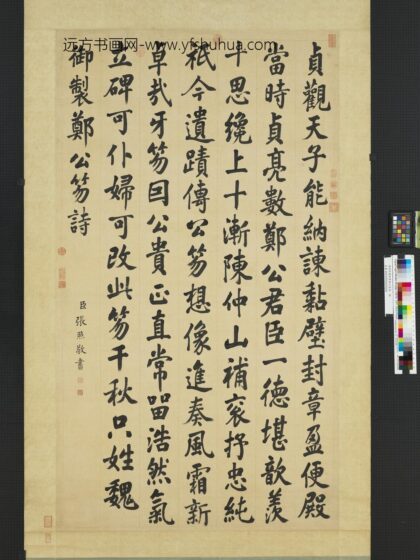 远方书画网-www.yfshuhua.com
貞觀天子能納諫黏壁封章盈便殿
當時貞亮數鄭公君臣一德堪歆羨
十思纔上十漸陳仲山補衮抒忠純
祇今遺蹟傳公笏想像進奏風霜新
卓哉牙笏因公貴正直常留浩然氣
立碑可仆婦可改此笏千秋只姓魏
御製鄭公笏詩
臣張照敬書